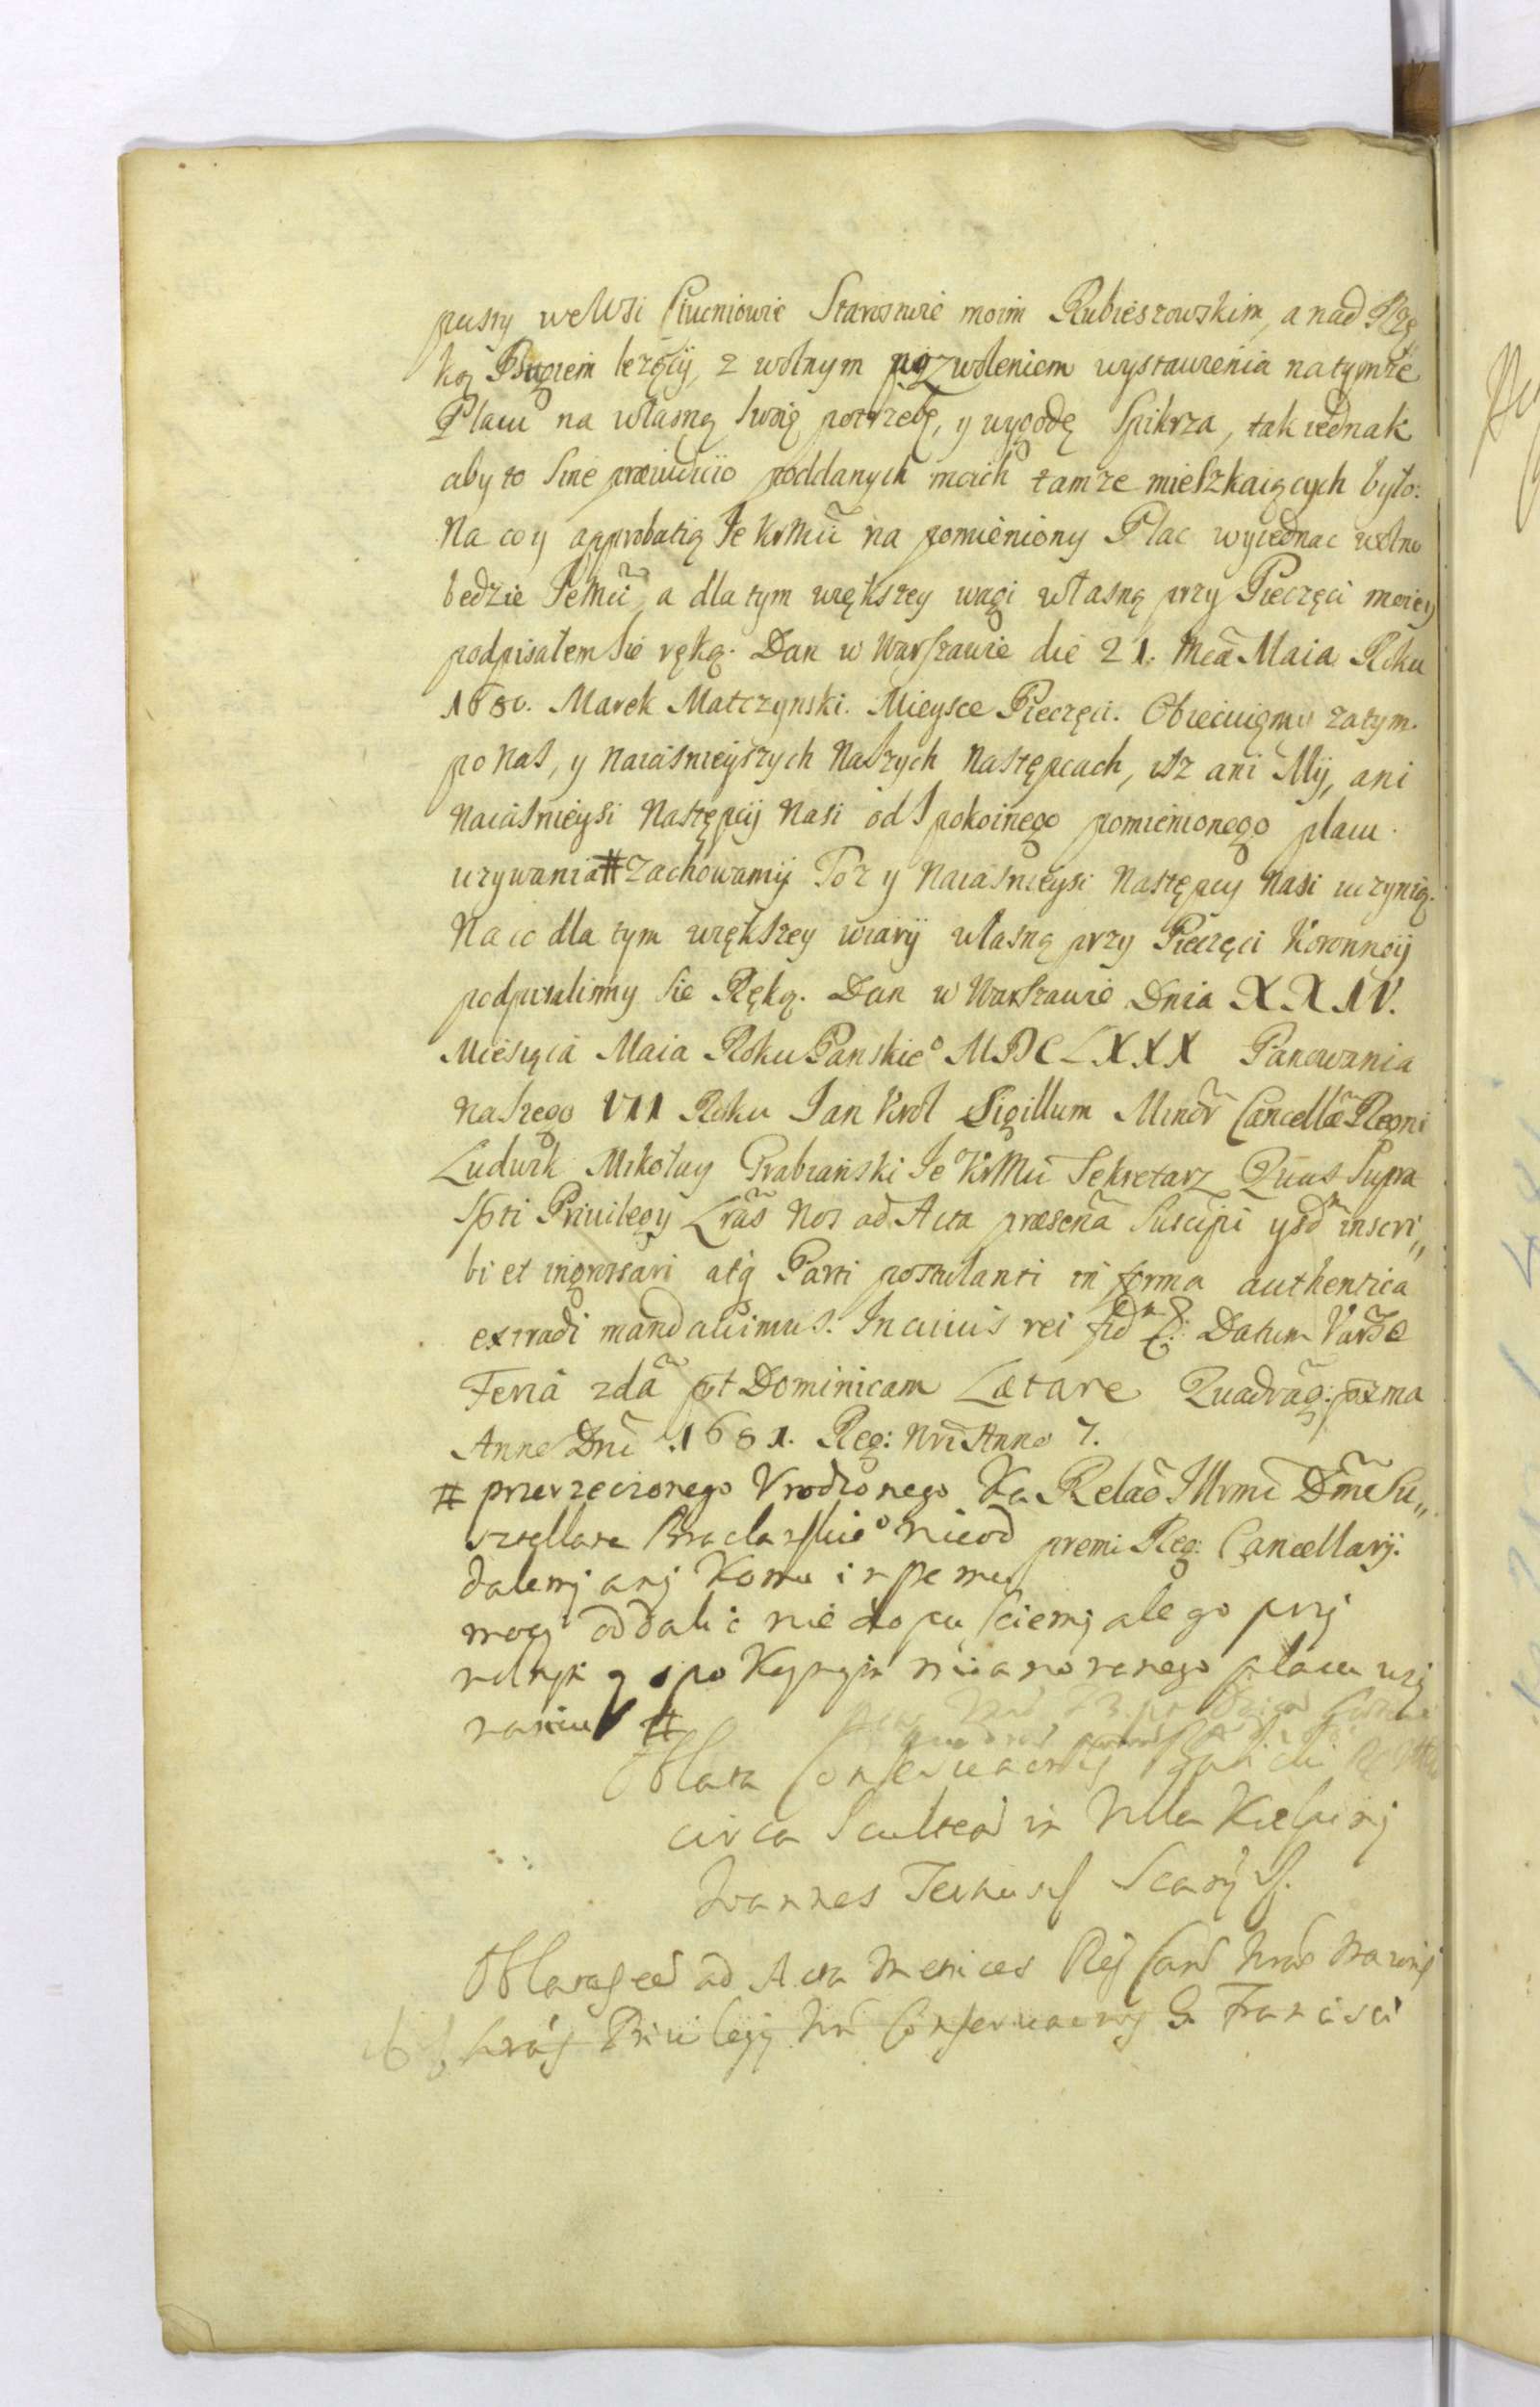 pusty we Wsi Ślucniowie Starostwie moim Rubieszowskim, a nad Rze
ką Bugiem leżący, z wolnym pozwoleniem wystawienia na tymże
Placu na własną swoię potrzebę, y wygodę Spikrza, tak iednak
aby to sine præiudicio poddanych moich tamże mieszkaiących było:
Na co y approbatią Je KrMci na pomieniony Plac wyiednac wolno
bedzie JeMci, a dla tym większey wagi własną przy Pieczęci moiey
podpisałem sie ręką. Dan w Warszawie die 21. Mca Maia Roku
1680. Marek Matczynski. Mieysce Pieczęci. Obiecuiemy zatym
po nas, y Naiaśnieyszych Naszych Następcach, isz ani My, ani
Naiaśnieysi Następcy Nasi od spokoinego pomienionego placu
uzywania # zachowamy Toż y Naiaśnieysi Następcy Nasi uczynią.
Na co dla tym większey wiary własną przy Pieczęci Koronney
podpisalismy sie Ręką. Dan w Warszawie Dnia XXIV.
Miesiąca Maia Roku Panskie° MDCLXXX Panowania
Naszego VII Roku Jan Krol Sigillum Minor Cancellæ Regni
Ludwik Mikołay Grabianski Je° KrMci Sekretarz Quas Supra
spti Privilegy Lrãs Nos ad Acta præsenã Suscipi ysdm inscri„
bi et ingrossari atq Parti postulanti in forma authentica
extradi mandavimus. In cuius rei fidm &: Datum Varsæ
Feria 2dã pt Dominicam Lætare Quadrag: pxma
Anno Dni 1681. Reg: Nri Anno 7.
# przerzeczonego Vrodzonego Ka Relão Illrmi Dmi Su„
sztellana Braclawskie° nieod premi Reg: Cancellarÿ.
dalemy any Komu inszemu
mocy oddalić nie dopuściemy ale go przy
y spokoynym mianowanego placu uzy
waniu #
Oblata Conservationis
circa Scultetiã in Villa Kiełpiny
Joannes
Oblata ad Acta Metrices Reg Canc
Privilegy Conservationis G. Francisci